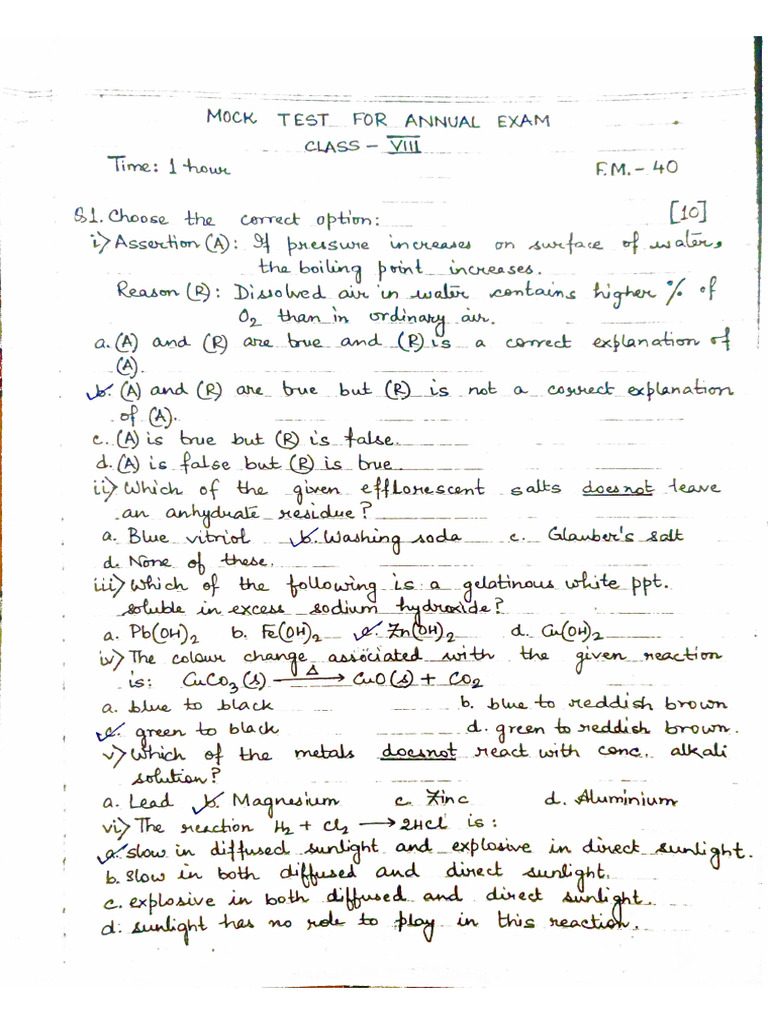 MOCK TEST FOR ANNUAL EXAM
CLASS - VIII
Time: 1 hour F.M. - 40
Q1. Choose the correct option: [10]
i) Assertion (A): If pressure increases on surface of water,
the boiling point increases.
Reason (R): Dissolved air in water contains higher % of
O₂ than in ordinary air.
a. (A) and (R) are true and (R) is a correct explanation of
(A).
b. (A) and (R) are true but (R) is not a correct explanation
of (A).
c. (A) is true but (R) is false.
d. (A) is false but (R) is true.
ii) Which of the given efflorescent salts doesnot leave
an anhydrate residue?
a. Blue vitriol b. Washing soda c. Glauber's salt
d. None of these.
iii) Which of the following is a gelatinous white ppt.
soluble in excess sodium hydroxide?
a. Pb(OH)₂ b. Fe(OH)₂ c. Zn(OH)₂ d. Cu(OH)₂
iv) The colour change associated with the given reaction
is: CuCO₃(s) —Δ→ CuO(s) + CO₂
a. blue to black b. blue to reddish brown
c. green to black d. green to reddish brown.
v) Which of the metals doesnot react with conc. alkali
solution?
a. Lead b. Magnesium c. Zinc d. Aluminium
vi) The reaction H₂ + Cl₂ → 2HCl is:
a. slow in diffused sunlight and explosive in direct sunlight.
b. slow in both diffused and direct sunlight.
c. explosive in both diffused and direct sunlight.
d. sunlight has no role to play in this reaction.